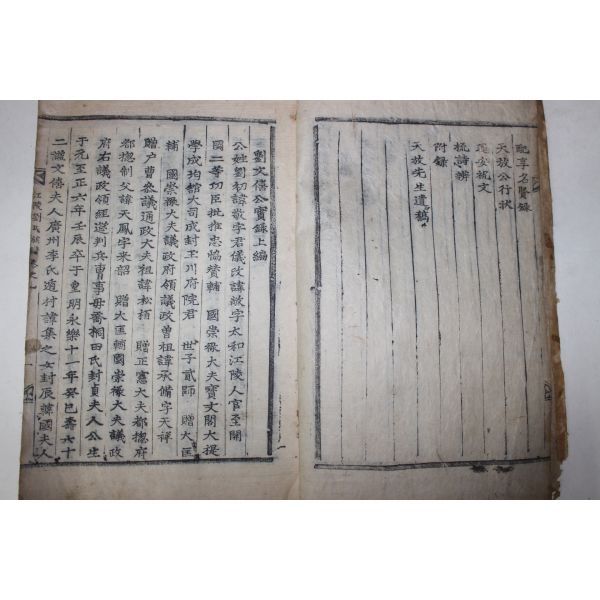 配享名賢錄
天放公行狀
安祝文
梳詩辨
附錄
天放先生遺稿
劉文僖公實錄上編
公姓劉初諱敬字君儀改諱敞字太和江陵人官至開
國二等功臣批推忠協贊輔 國崇祿大夫寶文閣大提
學成均館大司成封玉川府院君 世子貳師 贈大匡
輔 國崇祿大夫議政府領議政曾祖諱承備字天祥
贈戶曹參議通政大夫祖諱松栢 贈正憲大夫都摠府
都摠制父諱天鳳字來韶 贈大匡輔國崇祿大夫議政
府右議政領經筵判兵曹事母喬桐田氏封貞夫人公生
于元至正六年壬辰卒于皇明永樂十一年癸巳壽六十
二諡文僖夫人廣州李氏遁村諱集之女封辰韓國夫人
江陵劉氏